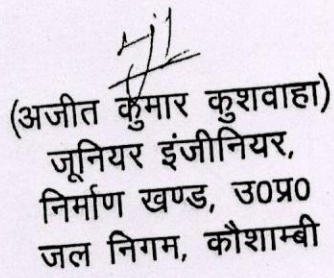 (अजीत कुमार कुशवाहा)
जूनियर इंजीनियर,
निर्माण खण्ड, उ0प्र0
जल निगम, कौशाम्बी